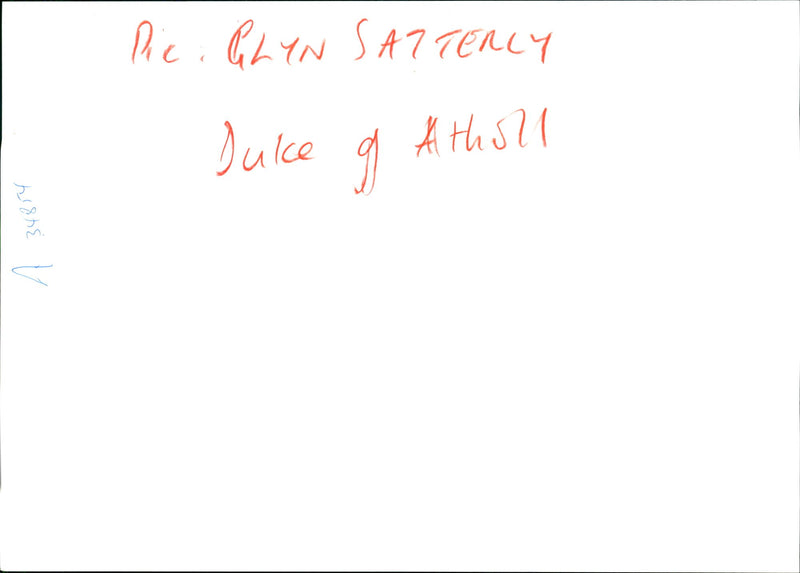 Pic: GLYN SATTERLY
Duke of Atholl
34854